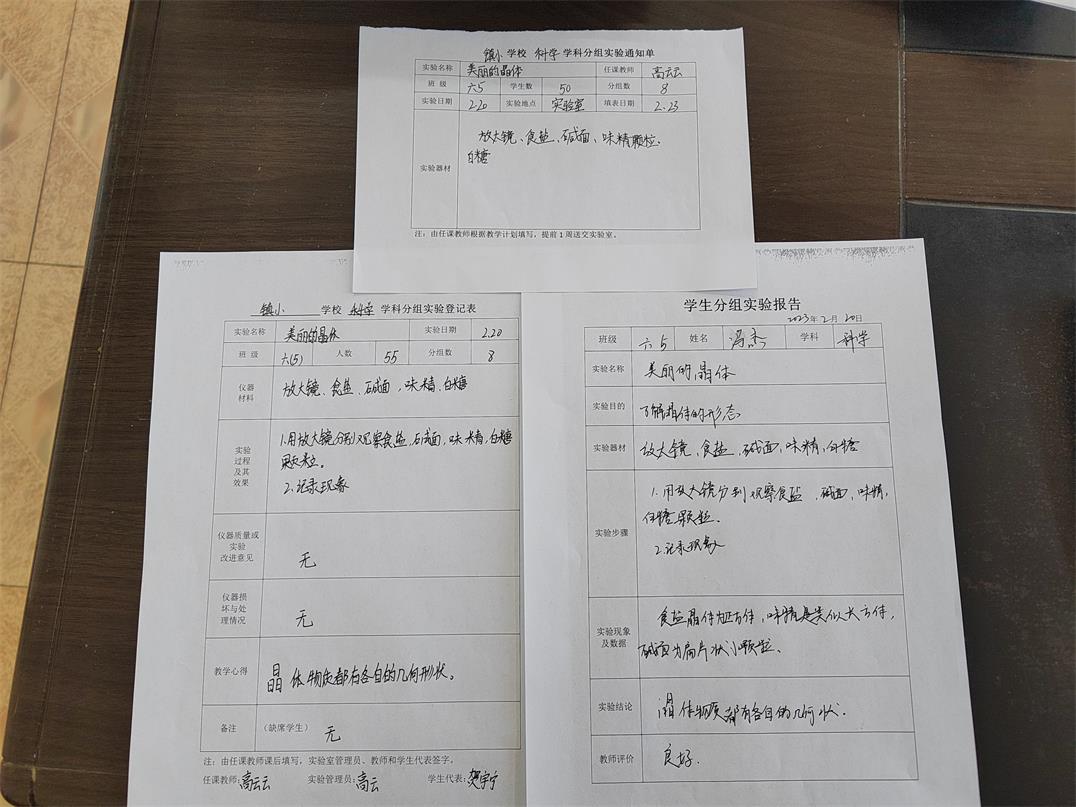 镇小 学校 科学 学科分组实验通知单
实验名称 美丽的晶体 任课教师 高云云
班 级 六5 学生数 50 分组数 8
实验日期 2.20 实验地点 实验室 填表日期 2.23
实验器材 放大镜、食盐、碱面、味精颗粒、
白糖
注：由任课教师根据教学计划填写，提前1周送交实验室。
镇小 学校 科学 学科分组实验登记表
实验名称 美丽的晶体 实验日期 2.20
班 级 六(5) 人数 55 分组数 8
仪器
材料
放大镜、食盐、碱面，味精，白糖
实验
过程
及其
效果
1.用放大镜分别观察食盐，碱面，味精，白糖
颗粒。
2.记录现象
仪器质量或
实验
改进意见
无
仪器损
坏与处
理情况
无
教学心得 晶体物质都有各自的几何形状。
备注 （缺席学生） 无
注：由任课教师课后填写，实验室管理员、教师和学生代表签字。
任课教师：高云云 实验管理员：高云 学生代表：樊宇宁
学生分组实验报告
2023年2月20日
班级 六5 姓名 冯杰 学科 科学
实验名称 美丽的晶体
实验目的 了解晶体的形态
实验器材 放大镜，食盐，碱面，味精，白糖
实验步骤
1.用放大镜分别观察食盐，碱面，味精，
白糖颗粒.
2.记录现象
实验现象
及数据
食盐晶体为正方体，味精是类似长方体，
碱面为扁片状小颗粒、
实验结论 晶体物质都有各自的几何状.
教师评价 良好.